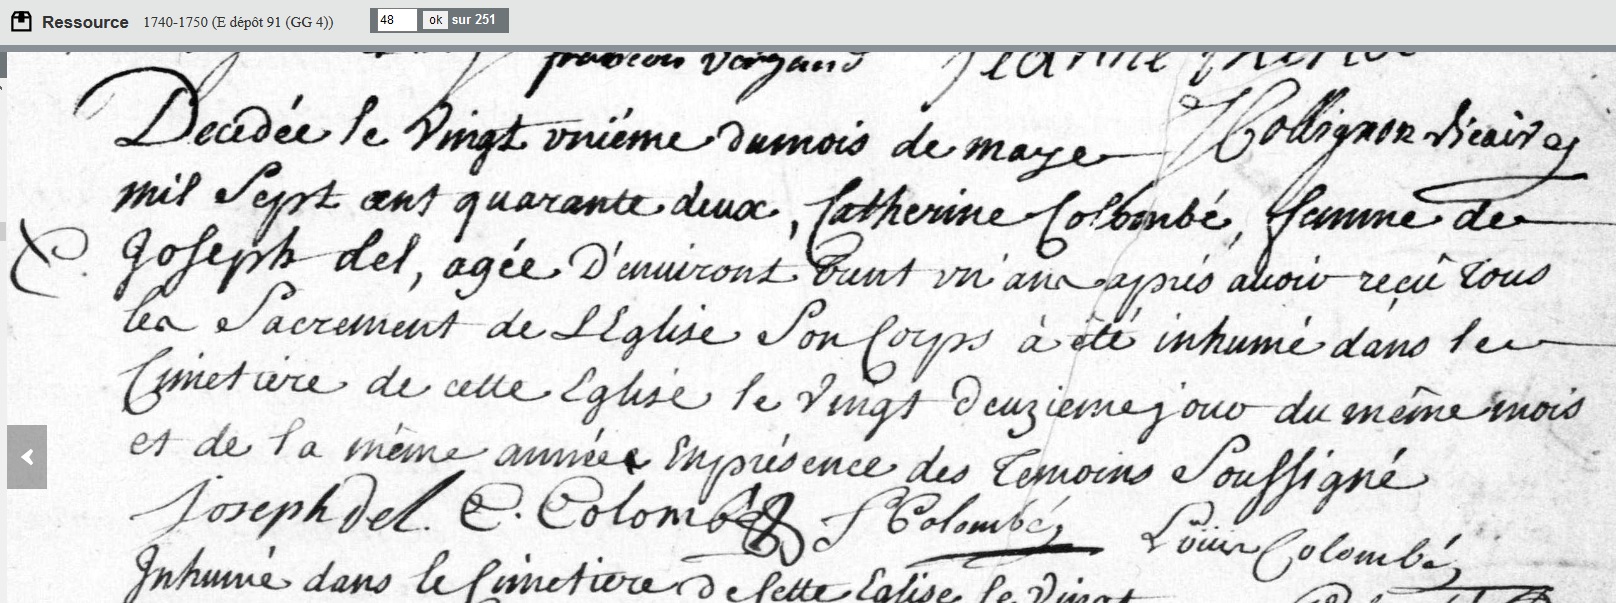 Ressource 1740-1750 (E dépôt 91 (GG 4)) 48 ok sur 251
francois
Decédée le vingt vniéme dumois de maye Collignon vicaire
mil Sept cent quarante deux, Catherine Colombé, femme de
Joseph del, agée D'enuiront trent vn'ans aprés avoir reçû tous
les Sacrement de L'Eglise Son Corps à été inhumé dans le
Cimetiere de cette Eglise le vingt deuzieme jour du même mois
et de la même année En présence des temoins Soussigné
Joseph Del. C. Colombé J Colombé Louis Colombé
Inhumé dans le Cimetiere de Cette Eglise le vingt